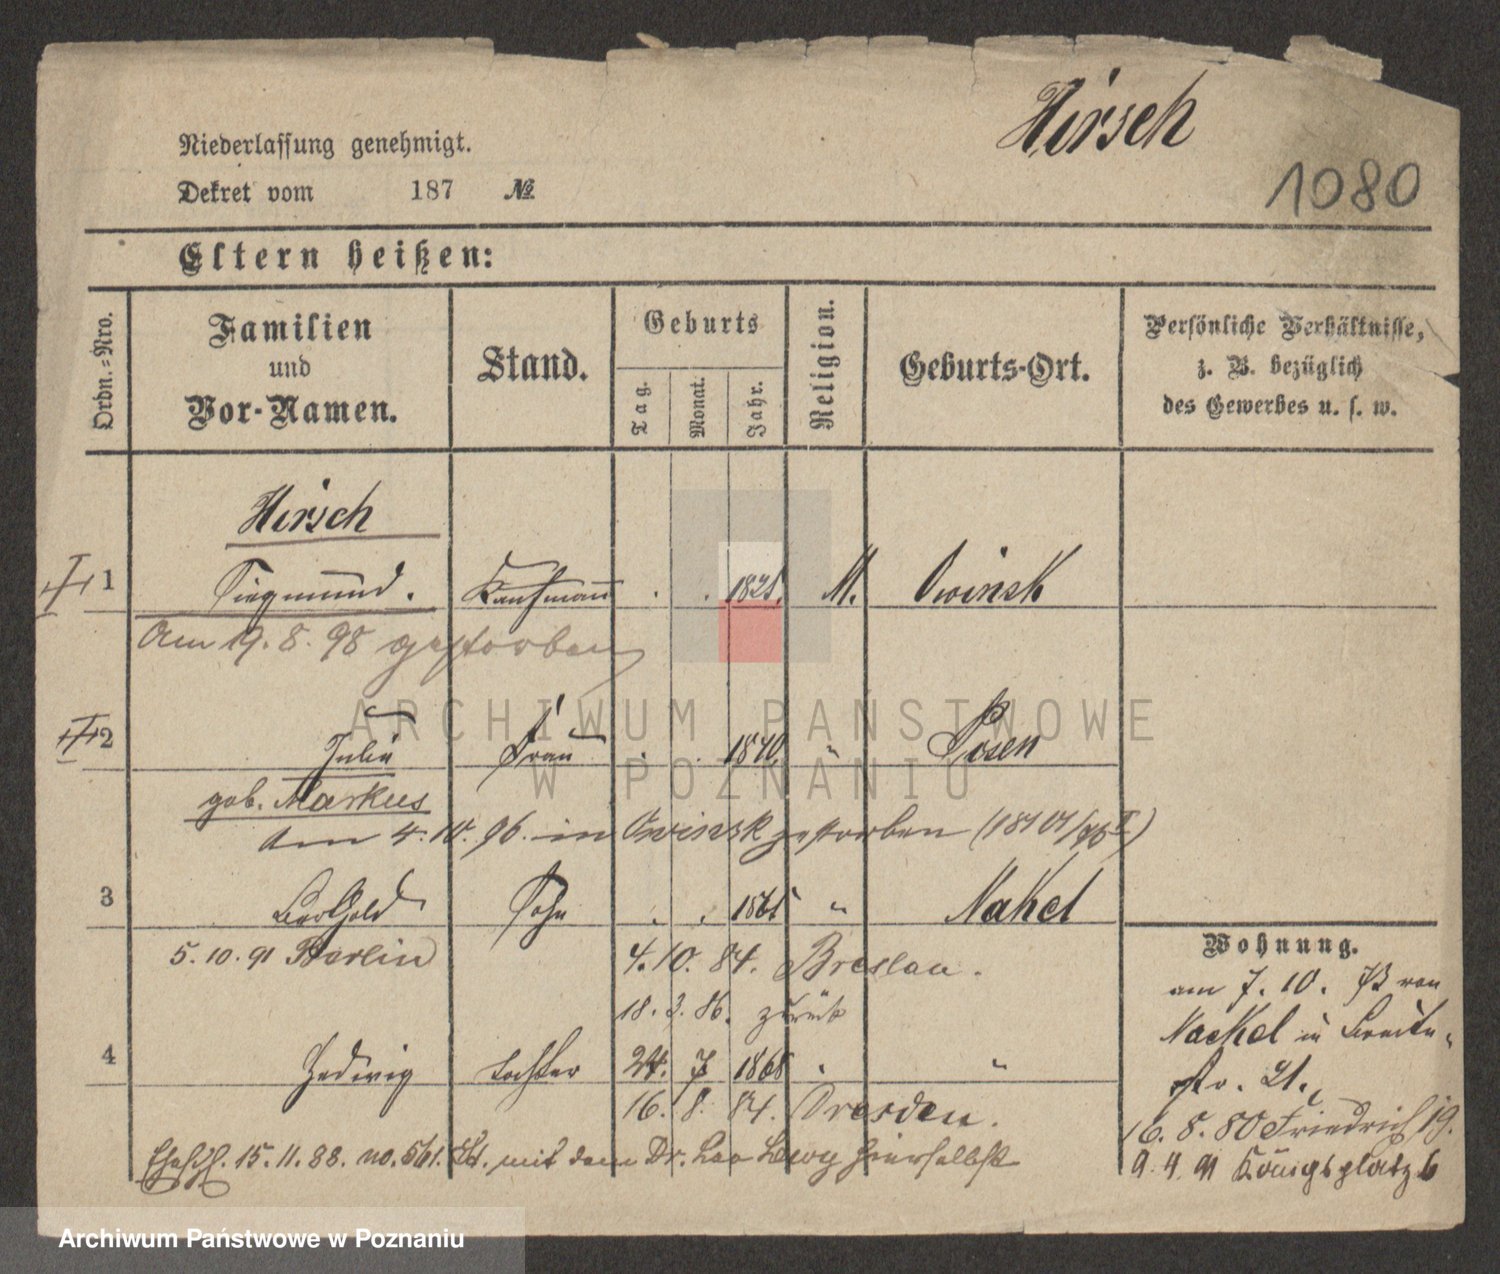 Hirsch
1080
Niederlassung genehmigt.
Dekret vom 187 №
Eltern heißen:
Ordn.-Nro.
Familien und Vor-Namen.
Stand.
Geburts
Tag. Monat. Jahr.
Religion.
Geburts-Ort.
Persönliche Verhältnisse,
z. B. bezüglich
des Gewerbes u. s. w.
Hirsch
1 Siegmund. Kaufmann . . 1825. M. Owinsk
Am 19. 8. 98 gestorben
2 Julie Frau . . 1840. " Posen
geb. Markus
Am 4. 10. 96. in Owinsk gestorben
3 Berthold Sohn . . 1865 " Nakel
5. 10. 91 Berlin 4. 10. 84. Breslau.
18. 3. 86. zurück
4 Hedwig Tochter 24. 7 1868 " "
16. 8. 84. Dresden.
15. 11. 88. no. 561. mit dem Dr. Leo Lewy hierselbst
Wohnung.
am 7. 10. 73 von
Nackel in Breite-
str. 21.
16. 8. 80 Friedrich 19.
9. 4. 91 Königsplatz 6
ARCHIWUM PAŃSTWOWE
W POZNANIU
Archiwum Państwowe w Poznaniu